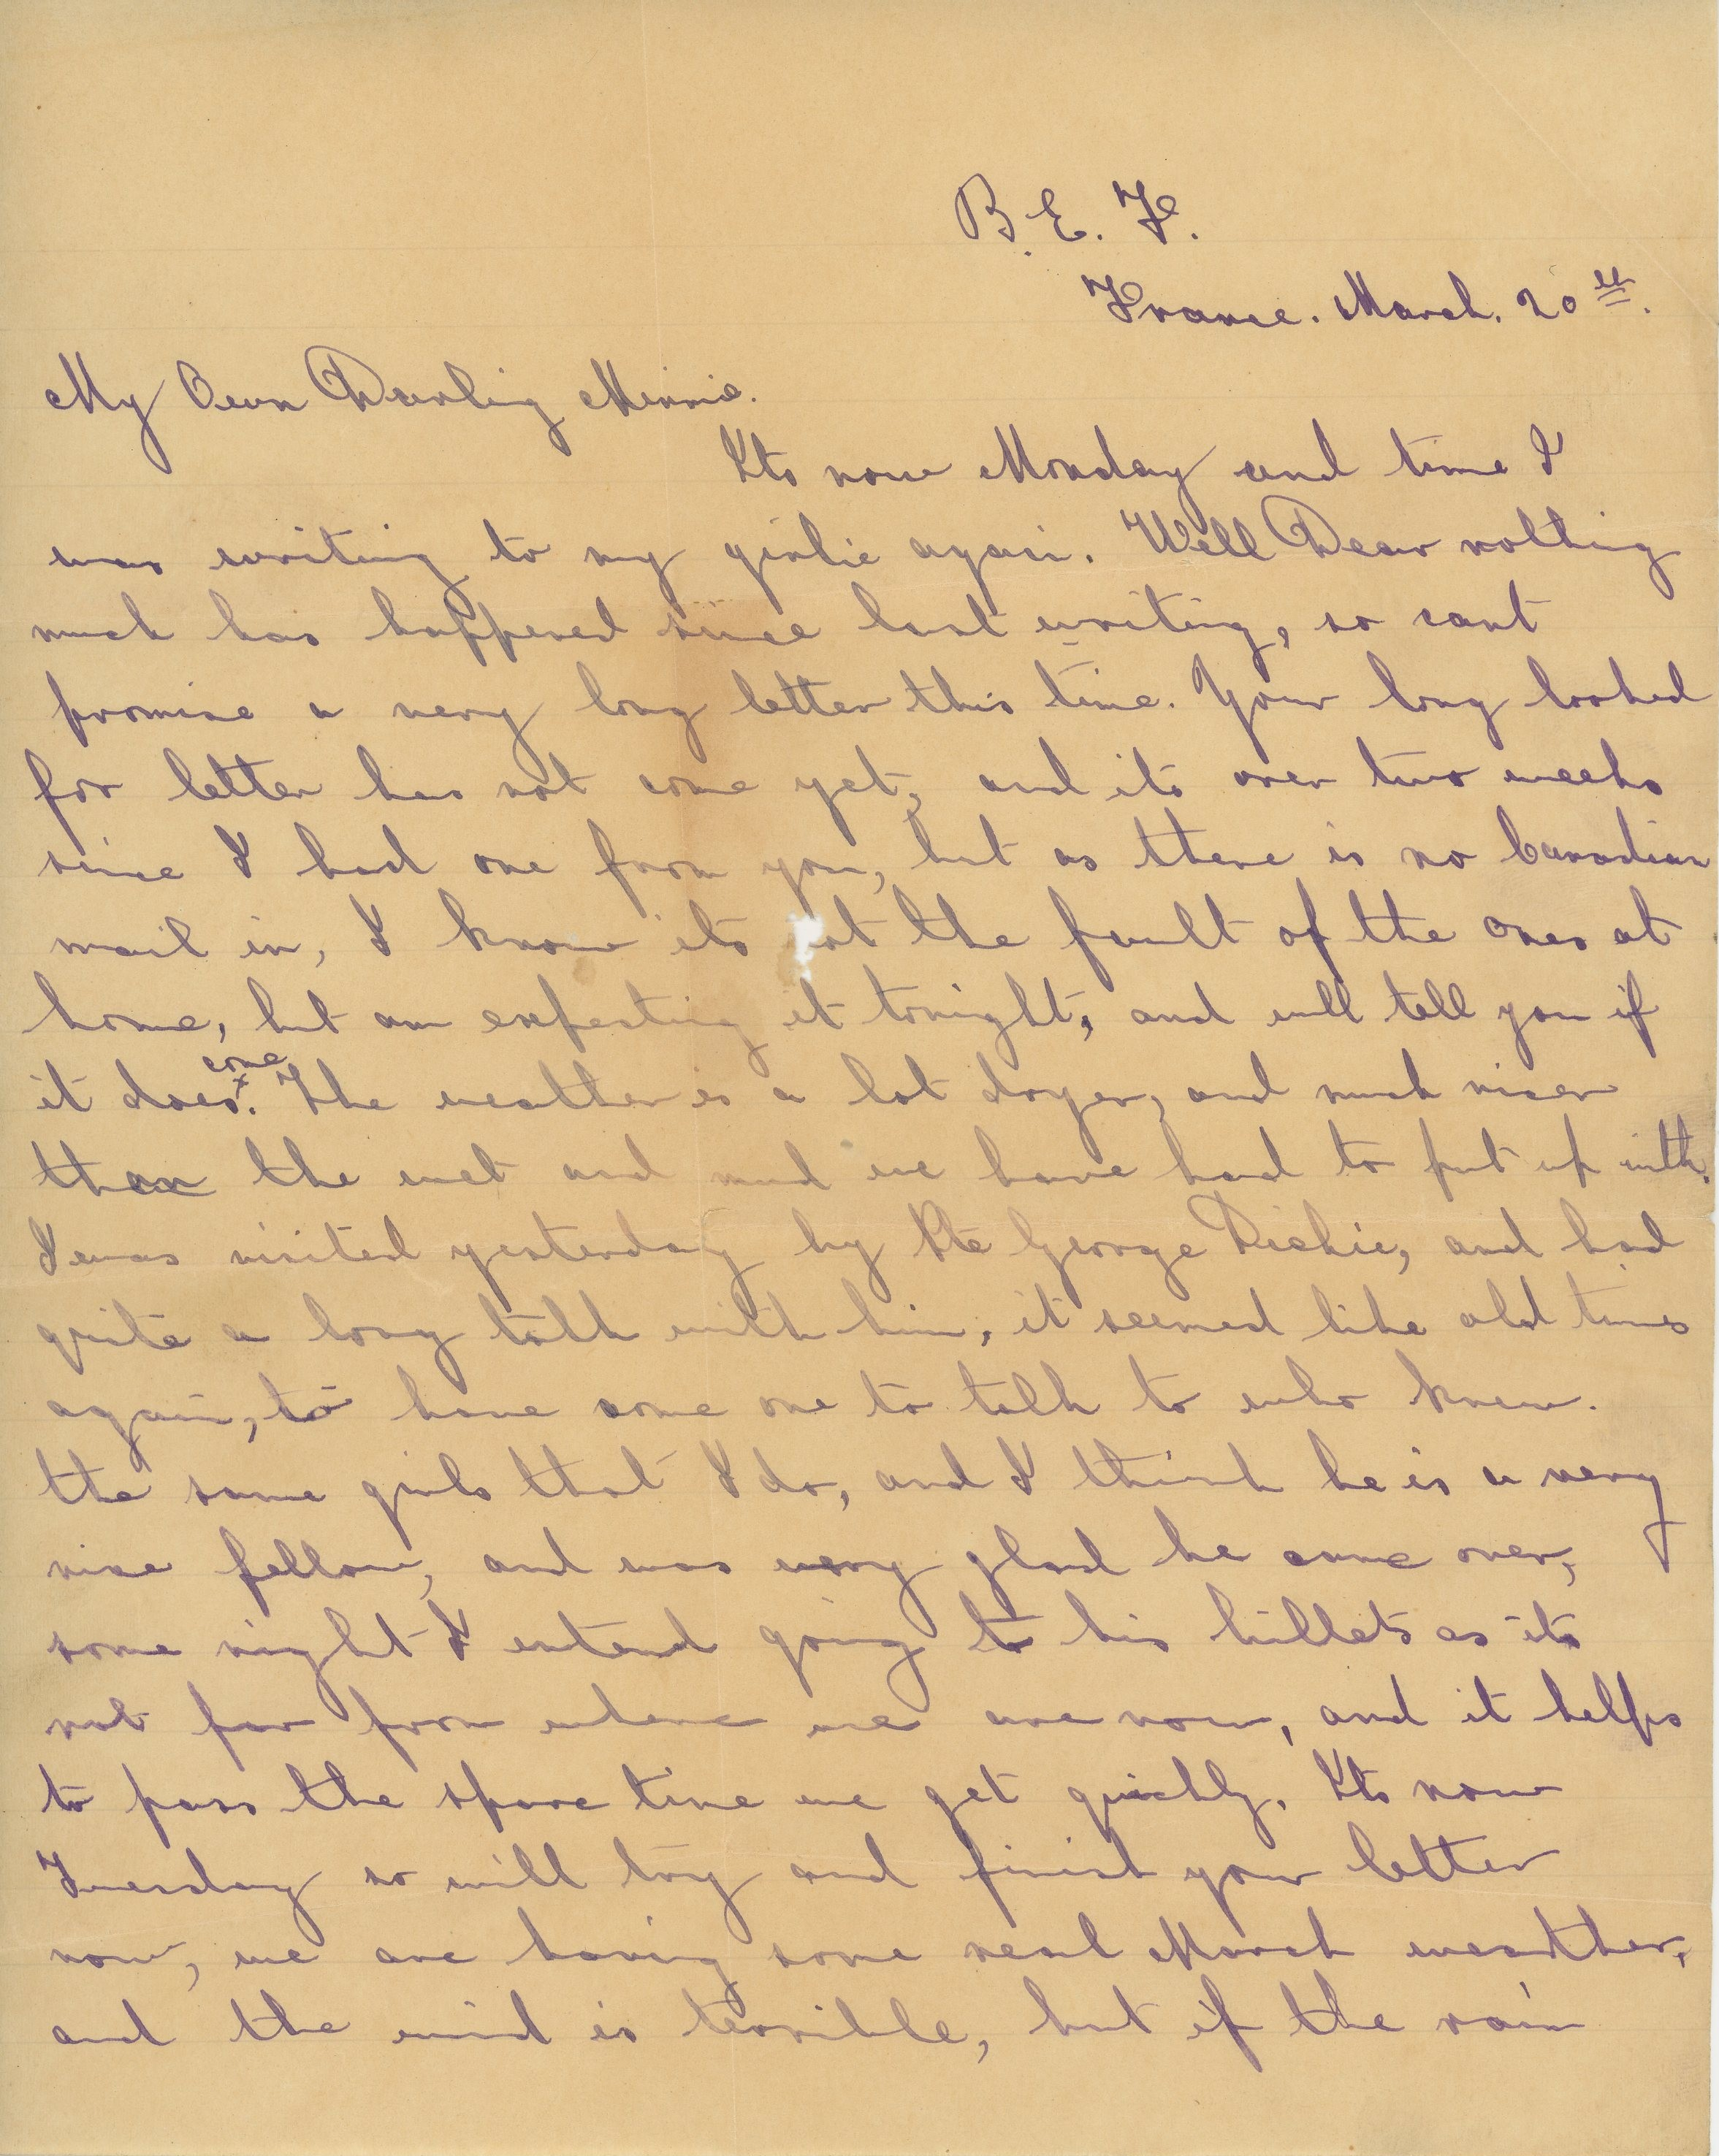 B.E.F.
France. March. 20th.
My Own Darling Minnie.
Its now Monday and time I
was writing to my girlie again. Well Dear nothing
much has happened since last writing, so cant
promise a very long letter this time. Your long looked
for letter has not come yet, and its over two weeks
since I had one from you, but as there is no Canadian
mail in, I know its not the fault of the ones at
home, but am expecting it tonight, and will tell you if
it does come. The weather is a lot dryer, and much nicer
than the wet and mud we have had to put up with.
I was visited yesterday by Pte George Richie, and had
quite a long talk with him, it seemed like old times
again, to have some one to talk to who knew.
the same girls that I do, and I think he is a very
nice fellow, and was very glad he came over,
some night I intend going to his billets as its
not far from where we are now, and it helps
to pass the spare time we get quickly. Its now
Tuesday so will try and finish your letter
now, we are having some real March weather,
and the wind is terrible, but if the rain